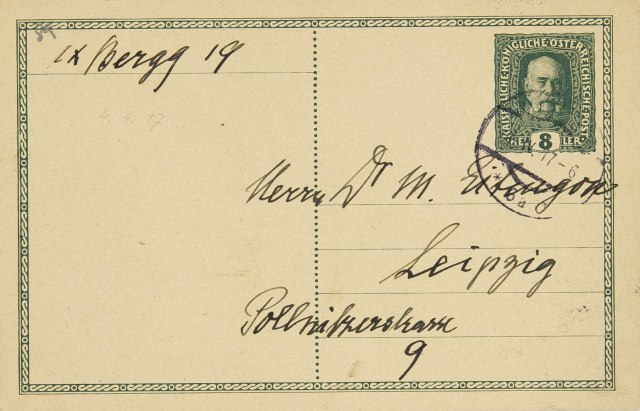 IX Bergg 19
4.4.17
KAISERLICHE KÖNIGLICHE ÖSTERREICHISCHE POST
8
HELLER
17-6
Herrn Dr M. Eitingon
Leipzig
Pöllnitzerstrasse
9